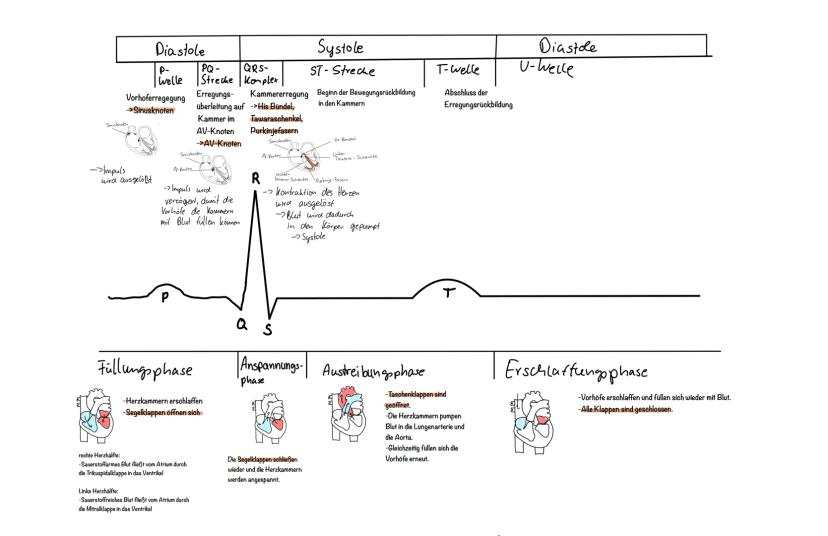 Diastole
Systole
Diastole
P-
Welle
PQ-
Strecke
QRS-
Komplex
ST-Strecke
T-Welle
U-Welle
Vorhoferregegung
->Sinusknoten
Erregungs-
überleitung auf
Kammer im
AV-Knoten
->AV-Knoten
Kammererregung
->His Bündel,
Tawaraschenkel,
Purkinjefasern
Beginn der Bewegungsrückbildung
in den Kammern
Abschluss der
Erregungsrückbildung
Sinusknoten
Sinusknoten
AV-Knoten
Sinusknoten
AV-Knoten
His-Bündel
Linker
Tawara-Schenkel
rechter
Tawara-Schenkel
Purkinje-Fasern
-> Impuls
wird ausgelößt
-> Impuls wird
verzögert, damit die
Vorhöfe die Kammern
mit Blut füllen können
-> Kontraktion des Herzen
wird ausgelöst
-> Blut wird dadurch
in den Körper gepumpt
-> Systole
R
P
Q
S
T
Füllungsphase
Anspannungs-
phase
Austreibungsphase
Erschlaffungsphase
-Herzkammern erschlaffen
-Segelklappen öffnen sich
rechte Herzhälfte:
-Sauerstoffarmes Blut fließt vom Atrium durch
die Trikuspidalklappe in das Ventrikel
Linke Herzhälfte:
-Sauerstoffreiches Blut fließt vom Atrium durch
die Mitralklappe in das Ventrikel
Die Segelklappen schließen
wieder und die Herzkammern
werden angespannt.
-Taschenklappen sind
geöffnet.
-Die Herzkammern pumpen
Blut in die Lungenarterie und
die Aorta.
-Gleichzeitig füllen sich die
Vorhöfe erneut.
-Vorhöfe erschlaffen und füllen sich wieder mit Blut.
-Alle Klappen sind geschlossen.